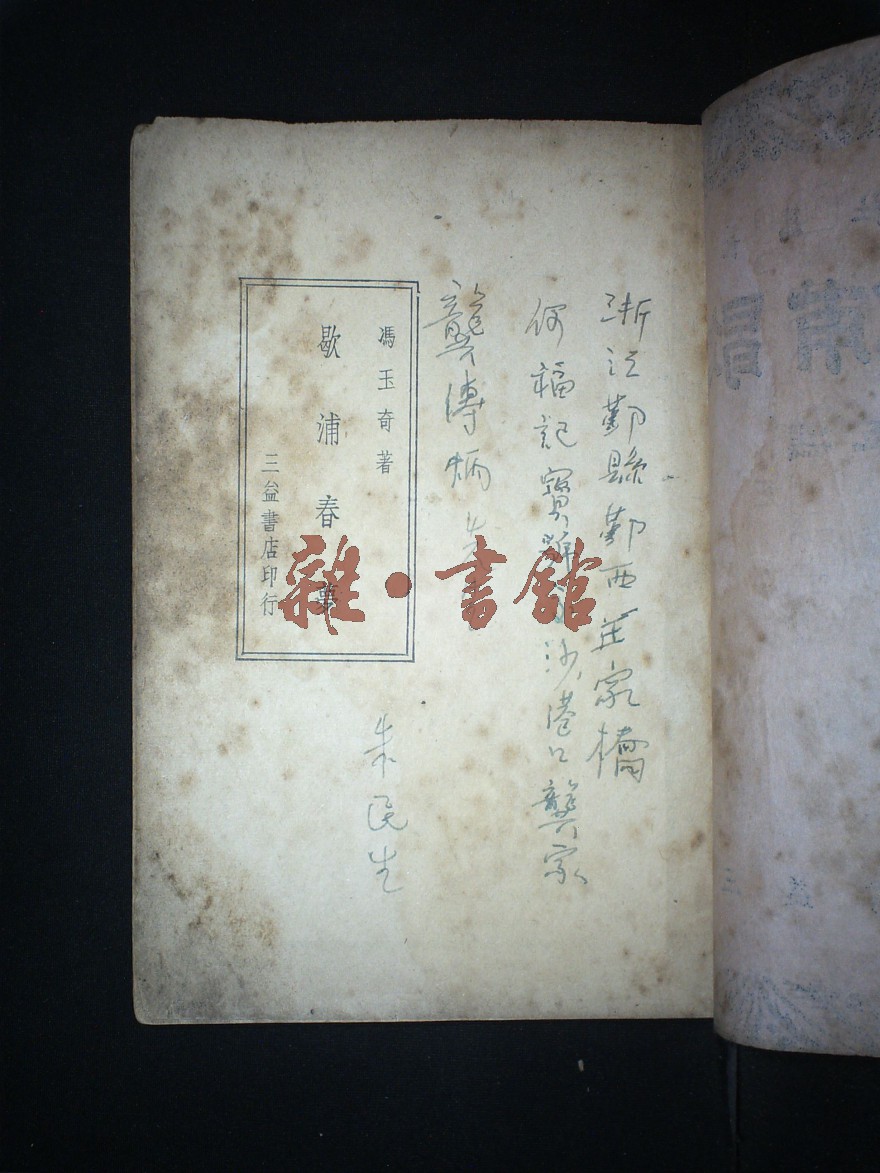 浙江鄞縣鄞西莊家橋
何福記寶號 沙港口龔家
龔傳炳先
朱民生
馮玉奇著
歇浦春夢
三益書店印行
雜·書館